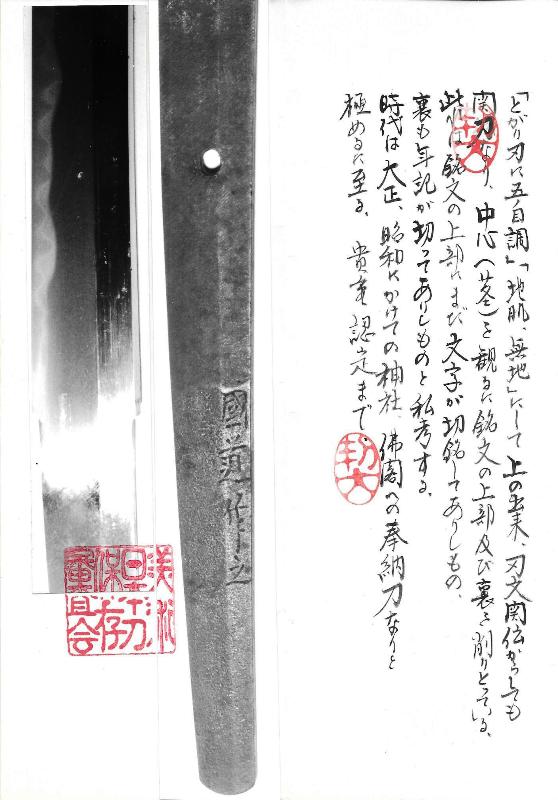 「とがり刃に五の目調」「地肌、無地」にして上の出来 刃文関伝からしても
関刀なり、中心（茎）を観るに銘文の上部及び裏を削りとっている、
此れは銘文の上部にまだ文字が切銘してありしもの、
裏も年記が切ってありしものと私考する。
時代は大正、昭和にかけての神社、佛閣への奉納刀なりと
極めるに至る。貴重認定まで、
國道作之